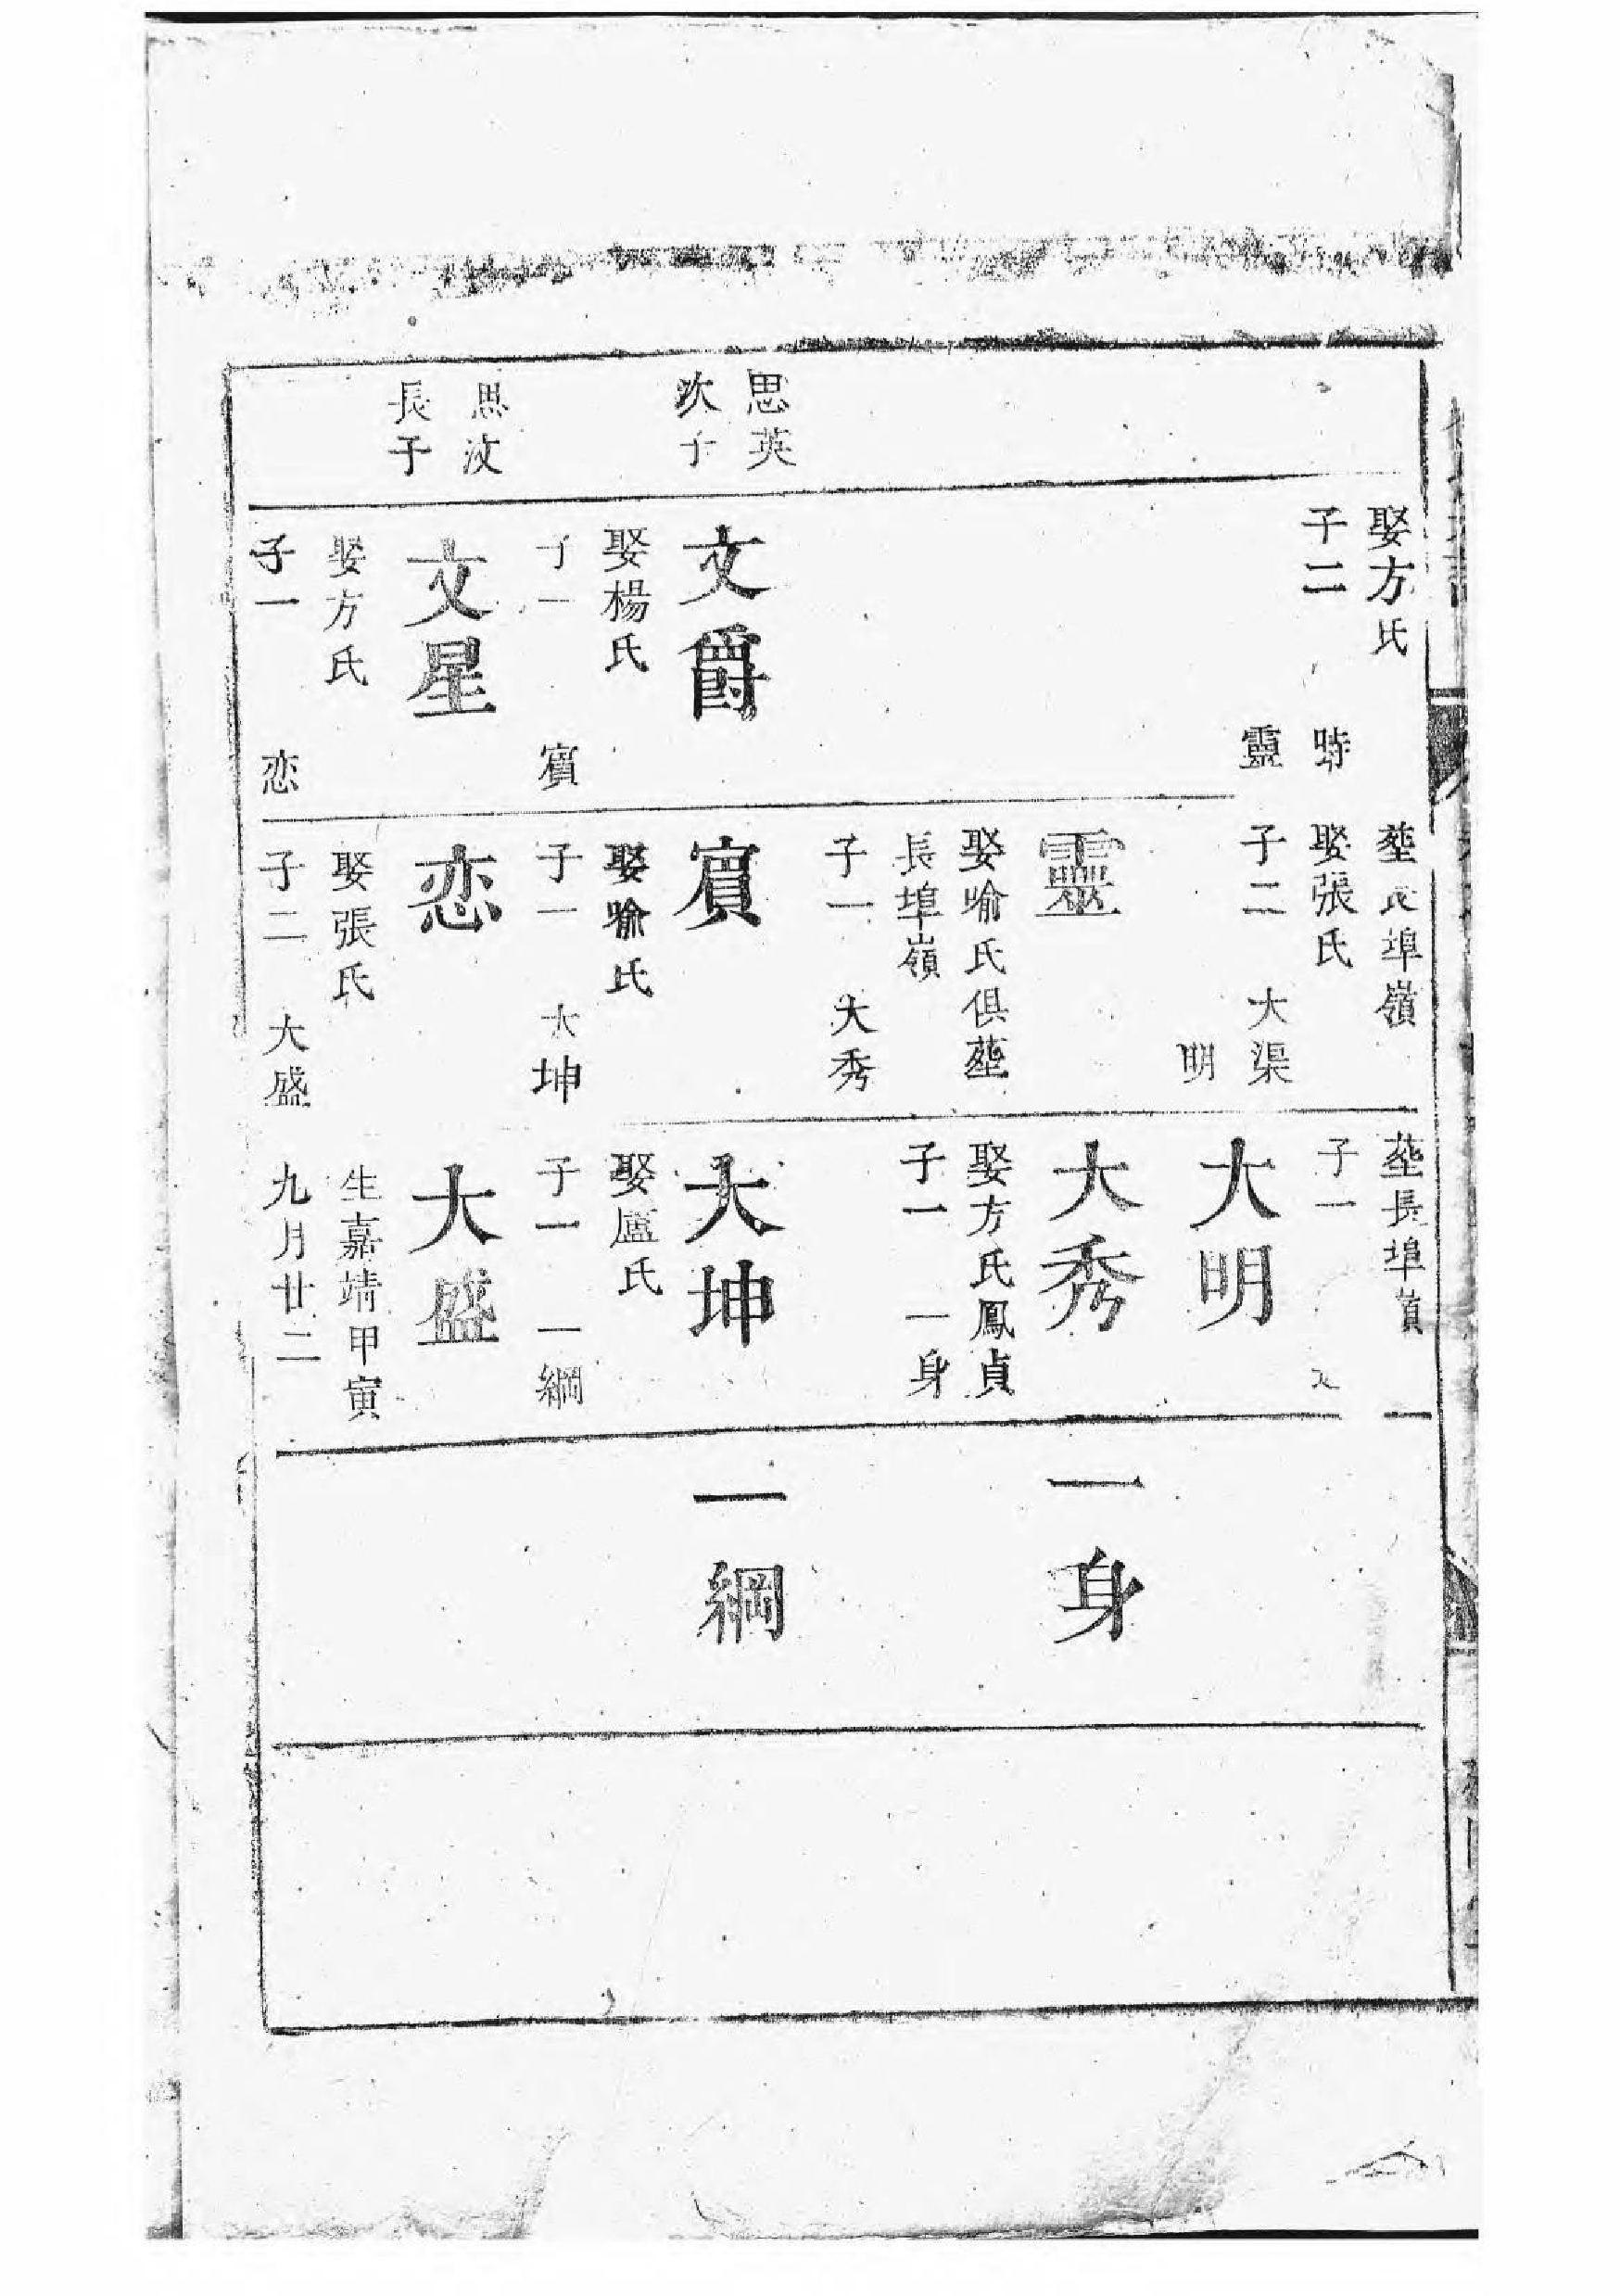 思英
次子
思汶
長子
娶方氏
子二
時
靈
文爵
娶楊氏
子一
賔
文星
娶方氏
子一
恋
塟長埠嶺
娶張氏
子二 大渠
明
靈
娶喻氏俱塟
長埠嶺
子一 大秀
賔
娶喻氏
子一 大坤
恋
娶張氏
子二 大盛
塟長埠
子一
大明
大秀
娶方氏鳳貞
子一 一身
大坤
娶盧氏
子一 一綱
大盛
生嘉靖甲寅
九月廿二
一身
一綱